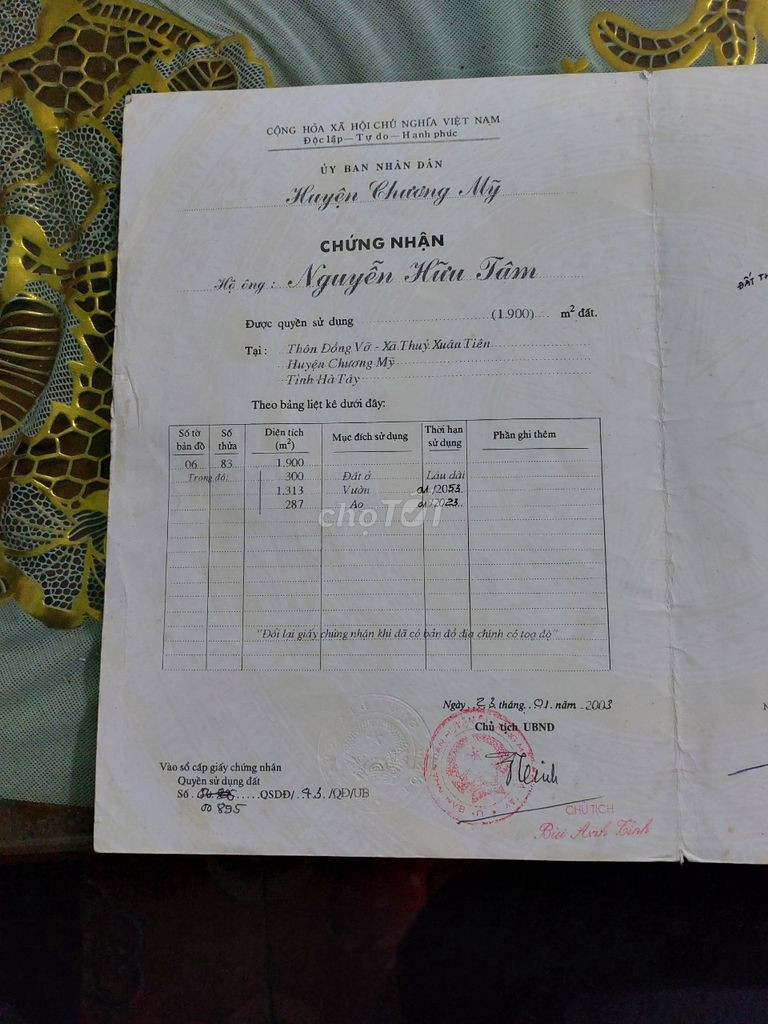 CỘNG HÒA XÃ HỘI CHỦ NGHĨA VIỆT NAM
Độc lập — Tự do — Hạnh phúc
ỦY BAN NHÂN DÂN
Huyện Chương Mỹ
CHỨNG NHẬN
Hộ ông : Nguyễn Hữu Tâm
Được quyền sử dụng (1.900) m² đất.
Tại : Thôn Đồng Vỡ - Xã Thuỷ Xuân Tiên
Huyện Chương Mỹ
Tỉnh Hà Tây
Theo bảng liệt kê dưới đây:
Số tờ bản đồ Số thửa Diện tích (m²) Mục đích sử dụng Thời hạn sử dụng Phần ghi thêm
06 83 1.900
Trong đó: 300 Đất ở Lâu dài
1.313 Vườn 01/2053
287 Ao 01/2023
chợTỐT
"Đổi lại giấy chứng nhận khi đã có bản đồ địa chính có toạ độ"
Ngày 23 tháng 01 năm 2003
Chủ tịch UBND
Vào sổ cấp giấy chứng nhận
Quyền sử dụng đất
Số QSDĐ/ 43 /QĐ/UB
00895
CHỦ TỊCH
Bùi Anh Tình
ĐẤT